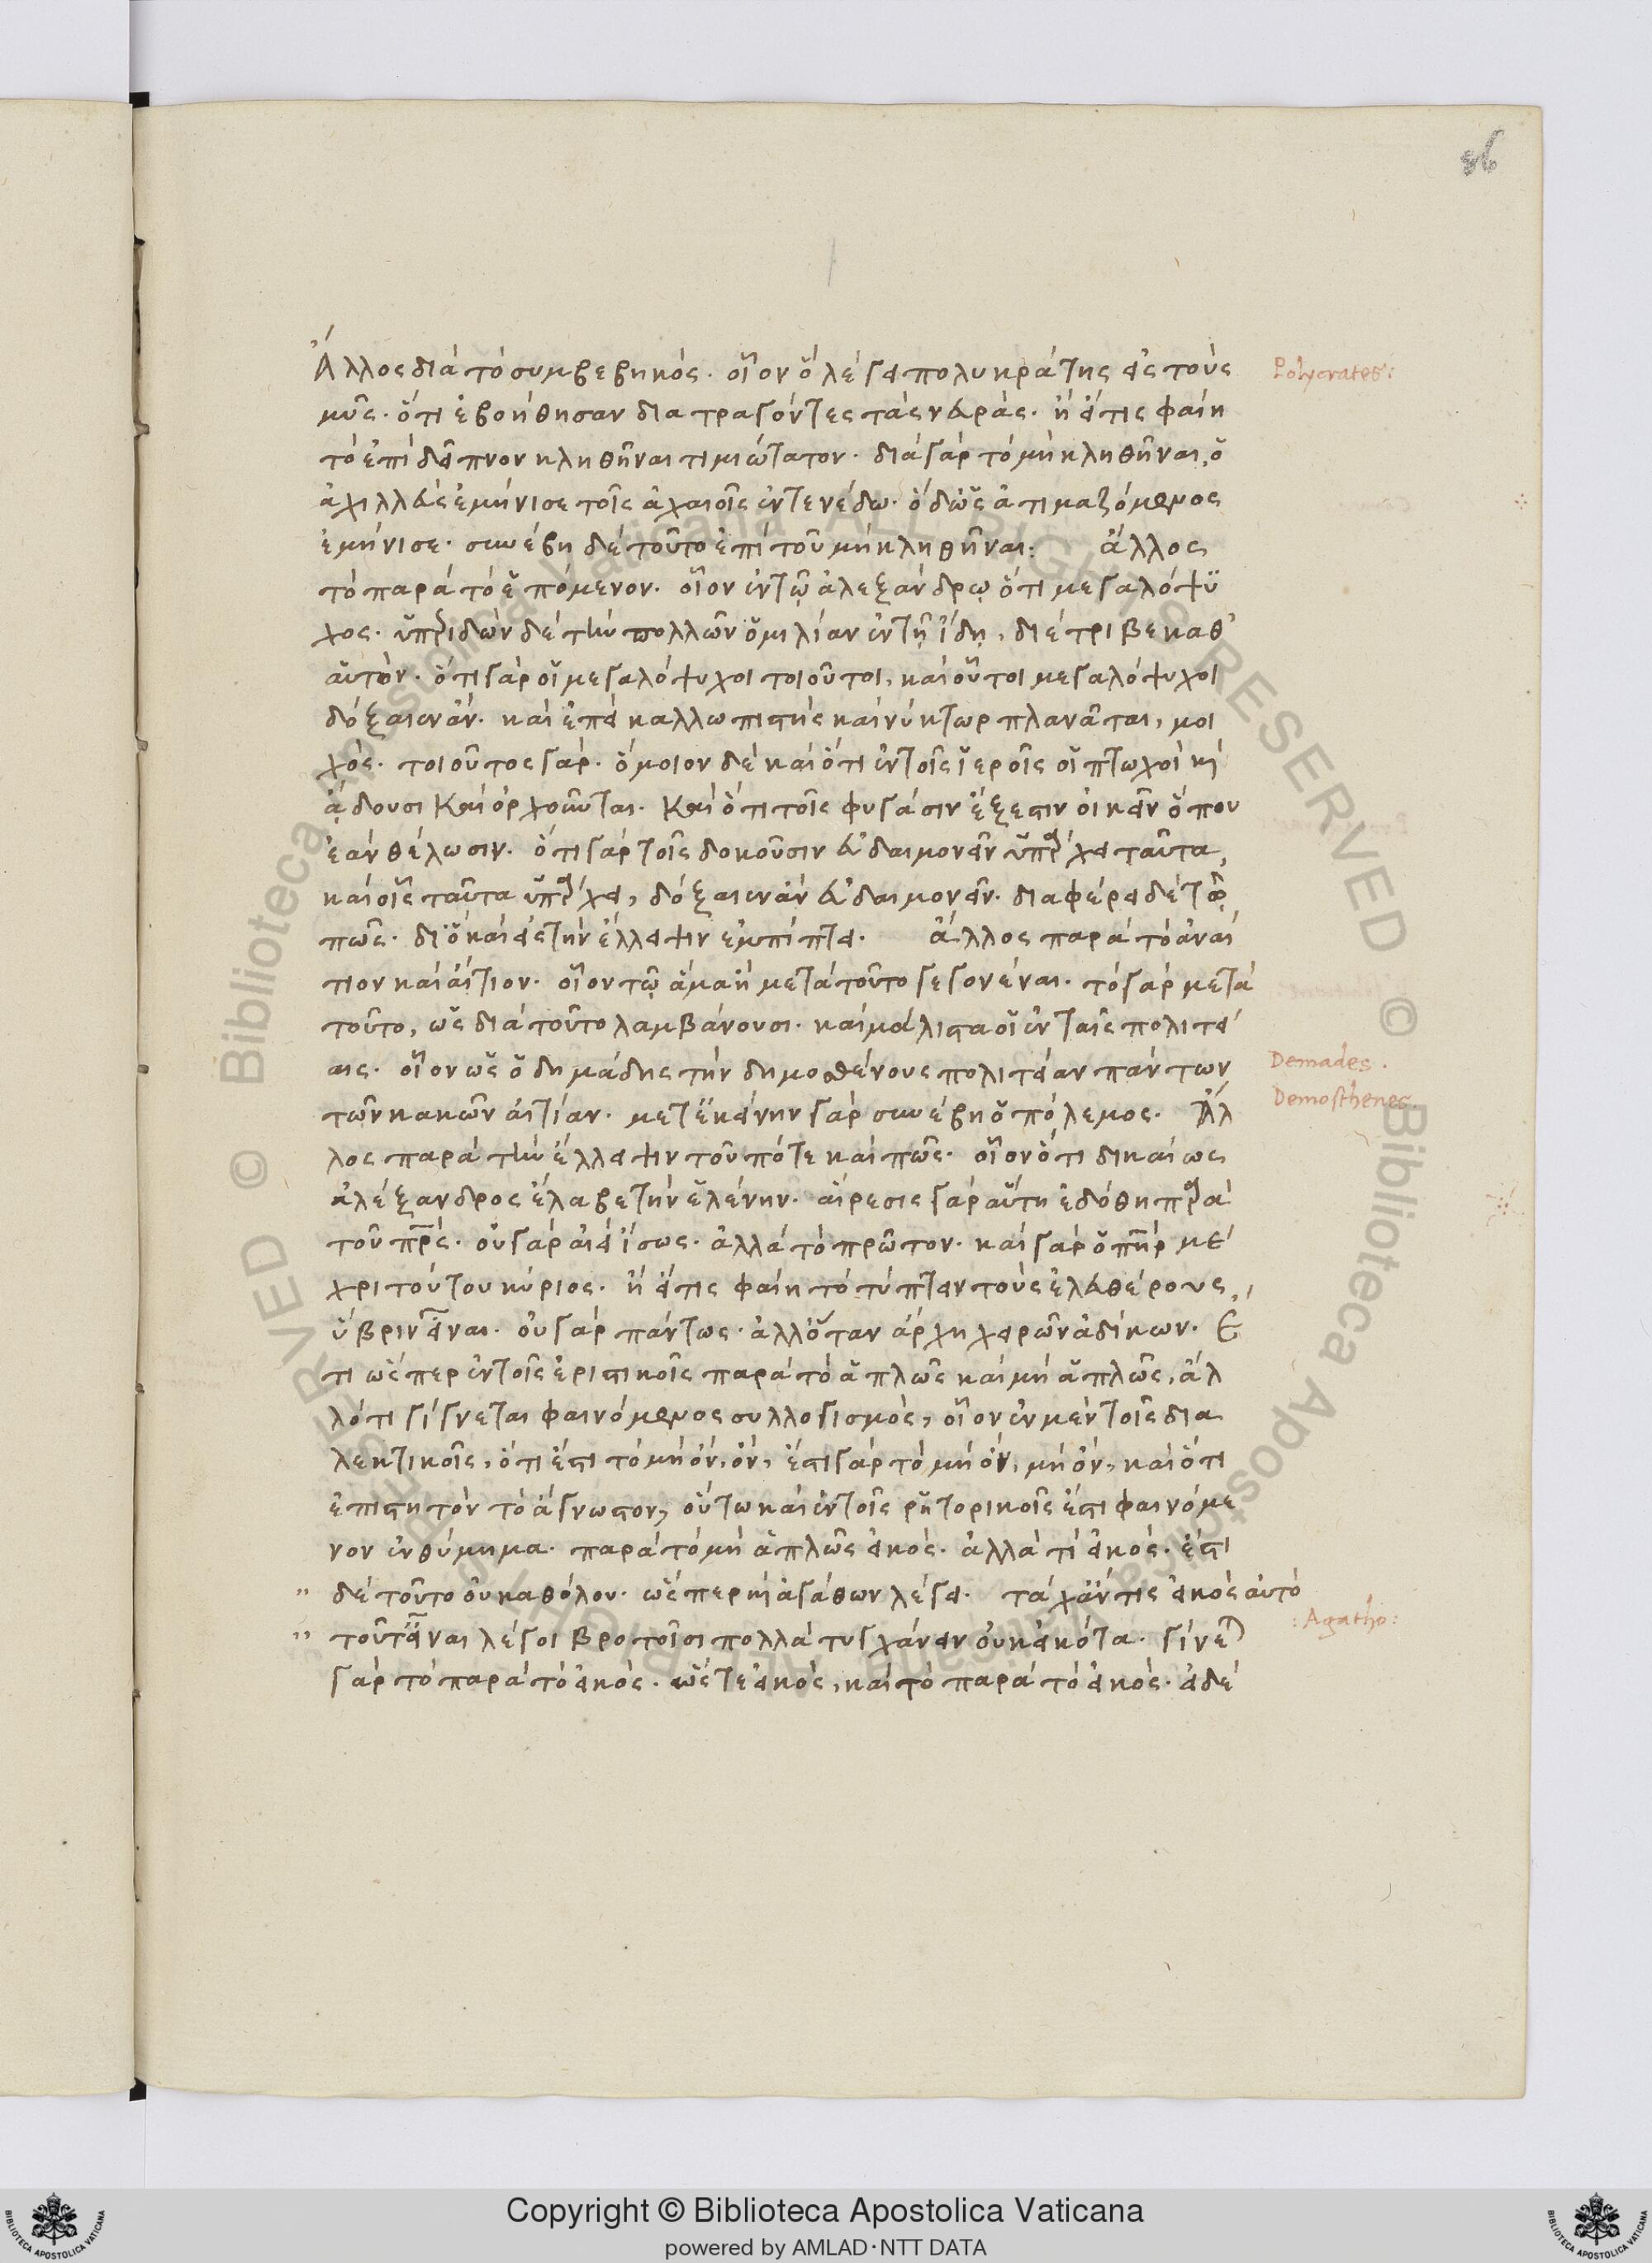 86
Ἄλλος διὰ τὸ συμβεβηκός. οἷον ὃ λέγει πολυκράτης εἰς τοὺς
Polycrates:
μῦς. ὅτι ἐβοήθησαν διατραγόντες τὰς νευράς. ἢ εἴ τις φαίη
τὸ ἐπὶ δεῖπνον κληθῆναι τιμιώτατον. διὰ γὰρ τὸ μὴ κληθῆναι, ὁ
ἀχιλλεὺς ἐμήνισε τοῖς ἀχαιοῖς ἐν τενέδω. ὁ δ' ὡς ἀτιμαζόμενος
ἐμήνισε. συνέβη δὲ τοῦτο ἐπὶ τοῦ μὴ κληθῆναι: ἄλλος
τὸ παρὰ τὸ ἑπόμενον. οἷον ἐν τῷ ἀλεξάνδρῳ ὅτι μεγαλόψυ
χος. ὑπεριδὼν δὲ τὴν πολλῶν ὁμιλίαν ἐν τῇ ἴδῃ, διέτριβε καθ'
αὑτόν. ὅτι γὰρ οἱ μεγαλόψυχοι τοιοῦτοι, καὶ οὗτοι μεγαλόψυχοι
δόξαιεν ἄν. καὶ ἐπεὶ καλλωπιστὴς καὶ νύκτωρ πλανᾶται, μοι
χός. τοιοῦτος γάρ. ὅμοιον δὲ καὶ ὅτι ἐν τοῖς ἱεροῖς οἱ πτωχοὶ κὶ
ᾄδουσι Καὶ ὀρχοῦνται. Καὶ ὅτι τοῖς φυγάσιν ἔξεστιν οἰκεῖν ὅπου
ἐὰν θέλωσιν. ὅτι γὰρ τοῖς δοκοῦσιν εὐδαιμονεῖν ὑπάρχει ταῦτα,
καὶ οἷς ταῦτα ὑπάρχει, δόξαιεν ἂν εὐδαιμονεῖν. διαφέρει δὲ τῷ
πῶς. διὸ καὶ εἰς τὴν ἔλλειψιν ἐμπίπτει. ἄλλος παρὰ τὸ ἀναί
τιον καὶ αἴτιον. οἷον τῷ ἅμα ἢ μετὰ τοῦτο γεγονέναι. τὸ γὰρ μετὰ
τοῦτο, ὡς διὰ τοῦτο λαμβάνουσι. καὶ μάλιστα οἱ ἐν ταῖς πολιτεί
αις. οἷον ὡς ὁ δημάδης τὴν δημοσθένους πολιτείαν πάντων
Demades.
τῶν κακῶν αἰτίαν. μετ' ἐκείνην γὰρ συνέβη ὁ πόλεμος. Ἄλ
Demosthenes.
λος παρὰ τὴν ἔλλειψιν τοῦ πότε καὶ πῶς. οἷον ὅτι δικαίως
ἀλέξανδρος ἔλαβε τὴν ἑλένην. αἵρεσις γὰρ αὕτη ἐδόθη παρὰ
τοῦ πρς. οὐ γὰρ αἰεὶ ἴσως. ἀλλὰ τὸ πρῶτον. καὶ γὰρ ὁ πηρ μέ
χρι τούτου κύριος. ἢ εἴ τις φαίη τὸ τύπτειν τοὺς ἐλευθέρους,
ὕβριν εἶναι. οὐ γὰρ πάντως. ἀλλ' ὅταν ἄρχη χειρῶν ἀδίκων. Ἔ
τι ὥσπερ ἐν τοῖς ἐριστικοῖς παρὰ τὸ ἁπλῶς καὶ μὴ ἁπλῶς, ἀλ
λό τι γίγνεται φαινόμενος συλλογισμός, οἷον ἐν μὲν τοῖς δια
λεκτικοῖς, ὅτι ἔστι τὸ μὴ ὄν, ὄν, ἔστι γὰρ τὸ μὴ ὄν, μὴ ὄν, καὶ ὅτι
ἐπιστητὸν τὸ ἄγνωστον, οὕτω καὶ ἐν τοῖς ῥητορικοῖς ἔστι φαινόμε
νον ἐνθύμημα. παρὰ τὸ μὴ ἁπλῶς εἰκός. ἀλλὰ τὶ εἰκός. ἔστι
" δὲ τοῦτο οὐ καθόλου. ὥσπερ κὶ ἀγάθων λέγει. τάχ' ἄν τις εἰκὸς αὐτὸ
:Agatho:
" τοῦτ' εἶναι λέγοι βροτοῖσι πολλὰ τυγχάνειν οὐκ εἰκότα. γίνε
γὰρ τὸ παρὰ τὸ εἰκός. ὥστε εἰκός, καὶ τὸ παρὰ τὸ εἰκός. εἰ δὲ
Copyright © Biblioteca Apostolica Vaticana
powered by AMLAD·NTT DATA